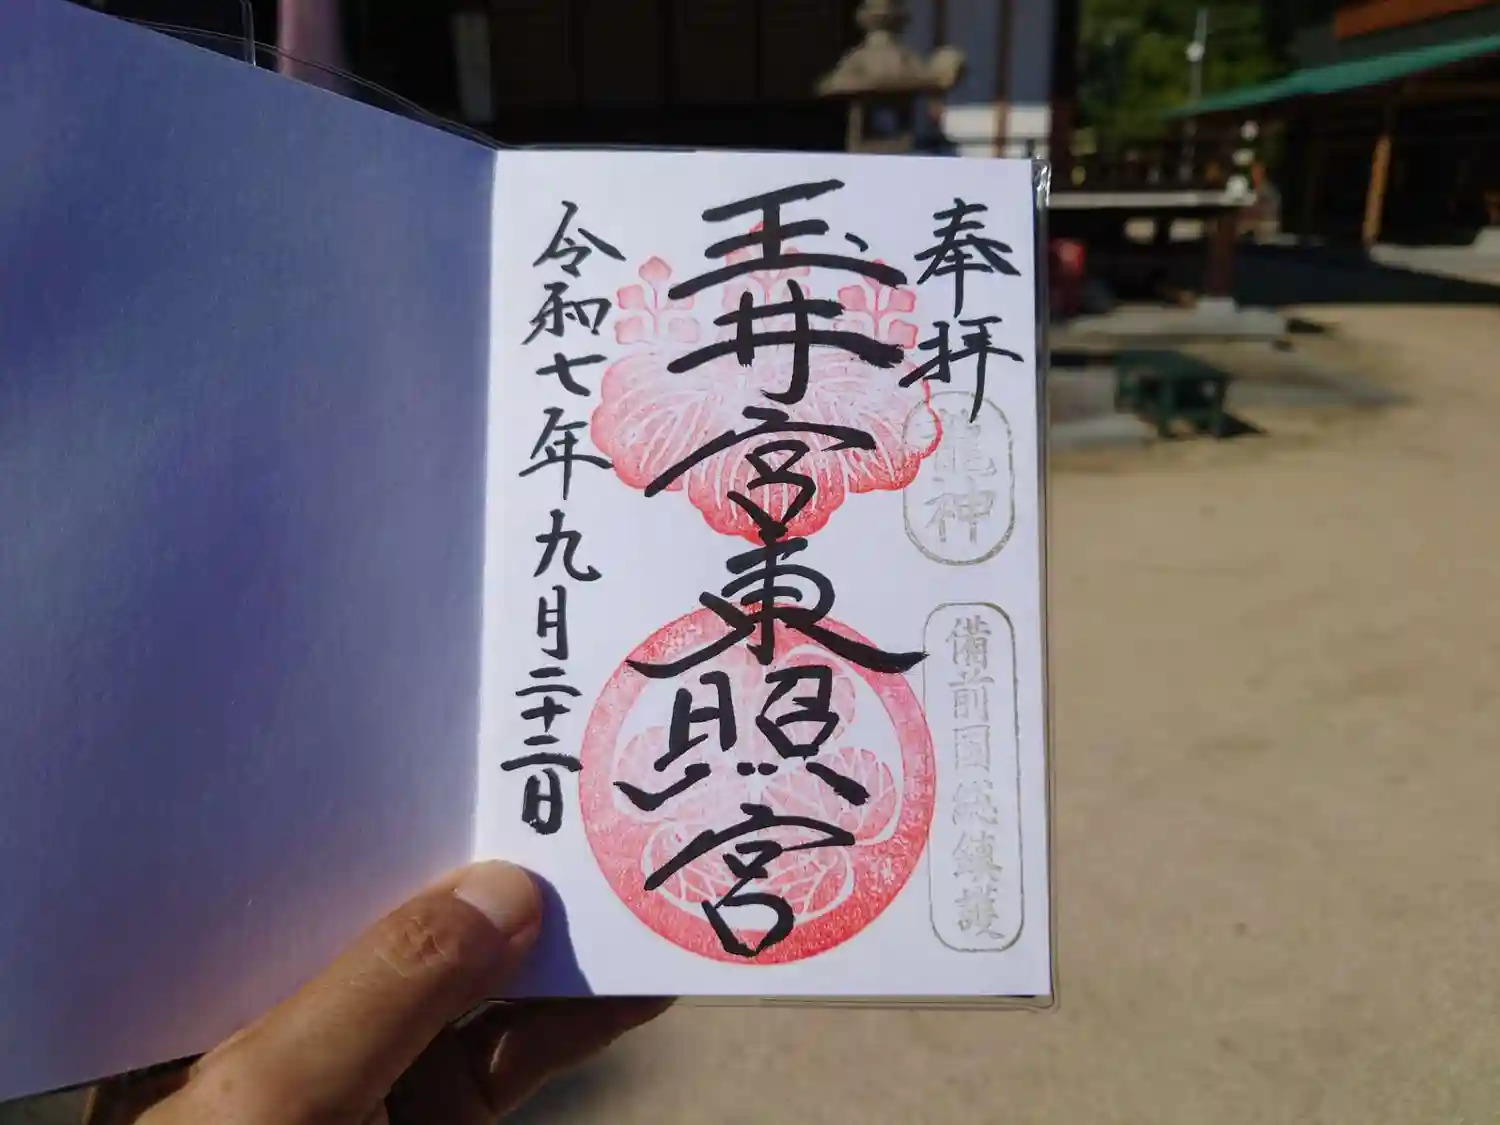 奉拝
龍神
備前国総鎮護
玉井宮東照宮
令和七年九月二十二日